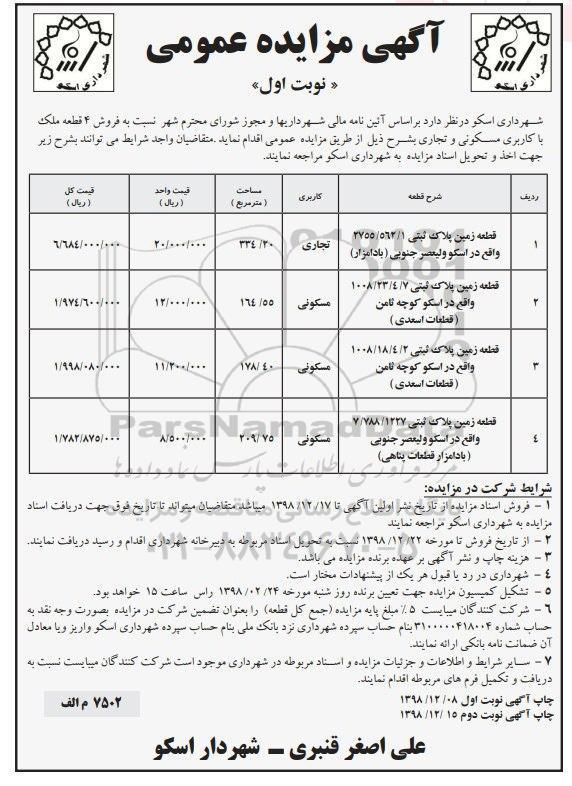 شهرداری اسکو
شهرداری اسکو
آگهی مزایده عمومی
« نوبت اول»
شهرداری اسکو درنظر دارد براساس آئین نامه مالی شهرداریها و مجوز شورای محترم شهر نسبت به فروش ۴ قطعه ملک
با کاربری مسکونی و تجاری بشرح ذیل از طریق مزایده عمومی اقدام نماید .متقاضیان واجد شرایط می توانند بشرح زیر
جهت اخذ و تحویل اسناد مزایده به شهرداری اسکو مراجعه نمایند.
ردیف شرح قطعه کاربری مساحت ( مترمربع ) قیمت واحد ( ریال ) قیمت کل ( ریال )
۱ قطعه زمین پلاک ثبتی ۲۷۵۵/۵۶۲/۱ واقع در اسکو ولیعصر جنوبی (بادامزار) تجاری ۳۳۴/۲۰ ۲۰/۰۰۰/۰۰۰ ۶/۶۸۴/۰۰۰/۰۰۰
۲ قطعه زمین پلاک ثبتی ۱۰۰۸/۲۳/۴/۷ واقع در اسکو کوچه ثامن ( قطعات اسعدی ) مسکونی ۱۶۴/۵۵ ۱۲/۰۰۰/۰۰۰ ۱/۹۷۴/۶۰۰/۰۰۰
۳ قطعه زمین پلاک ثبتی ۱۰۰۸/۱۸/۴/۲ واقع در اسکو کوچه ثامن ( قطعات اسعدی ) مسکونی ۱۷۸/۴۰ ۱۱/۲۰۰/۰۰۰ ۱/۹۹۸/۰۸۰/۰۰۰
۴ قطعه زمین پلاک ثبتی ۷/۷۸۸/۱۲۲۷ واقع در اسکو ولیعصر جنوبی (بادامزار قطعات پناهی) مسکونی ۲۰۹/۷۵ ۸/۵۰۰/۰۰۰ ۱/۷۸۲/۸۷۵/۰۰۰
ParsNamadData
شرایط شرکت در مزایده:
۱ – فروش اسناد مزایده از تاریخ نشر اولین آگهی تا ۱۳۹۸/۱۲/۱۷ میباشد متقاضیان میتواند تا تاریخ فوق جهت دریافت اسناد
مزایده به شهرداری اسکو مراجعه نمایند
۲ – از تاریخ فروش تا مورخه ۱۳۹۸/۱۲/۲۲ نسبت به تحویل اسناد مربوطه به دبیرخانه شهرداری اقدام و رسید دریافت نمایند.
۳ – هزینه چاپ و نشر آگهی بر عهده برنده مزایده می باشد.
۴ – شهرداری در رد یا قبول هر یک از پیشنهادات مختار است.
۵ – تشکیل کمیسیون مزایده جهت تعیین برنده روز شنبه مورخه ۱۳۹۸/۰۲/۲۴ راس ساعت ۱۵ خواهد بود.
۶ – شرکت کنندگان میبایست ۵٪ مبلغ پایه مزایده (جمع کل قطعه) را بعنوان تضمین شرکت در مزایده بصورت وجه نقد به
حساب شماره ۳۱۰۰۰۰۰۴۱۸۰۰۴ بنام حساب سپرده شهرداری نزد بانک ملی بنام حساب سپرده شهرداری اسکو واریز ویا معادل
آن ضمانت نامه بانکی ارائه نمایند.
۷ – سایر شرایط و اطلاعات و جزئیات مزایده و اسناد مربوطه در شهرداری موجود است شرکت کنندگان میبایست نسبت به
دریافت و تکمیل فرم های مربوطه اقدام نمایند.
چاپ آگهی نوبت اول ۱۳۹۸/۱۲/۰۸
چاپ آگهی نوبت دوم ۱۳۹۸/۱۲/۱۵
۷۵۰۲ م الف
علی اصغر قنبری – شهردار اسکو